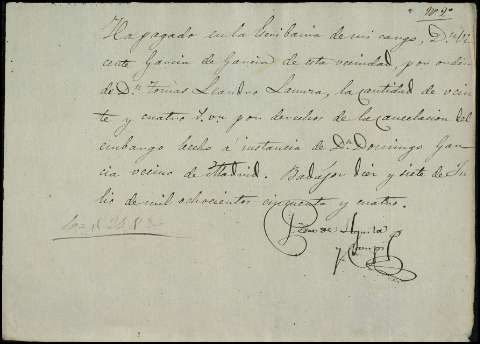 N. 2º
Ha pagado en la Escribania de mi cargo, D.n Vi
cente Garcia de Garcia de esta vecindad, por orden
de D.n Tomas Leandro Lamza, la cantidad de vein
te y cuatro r. vn por derechos de la cancelacion del
embargo hecho a instancia de D.n Domingo Gar
cia vecino de Madrid. Badajoz diez y siete de Ju
lio de mil ochocientos cincuenta y cuatro.